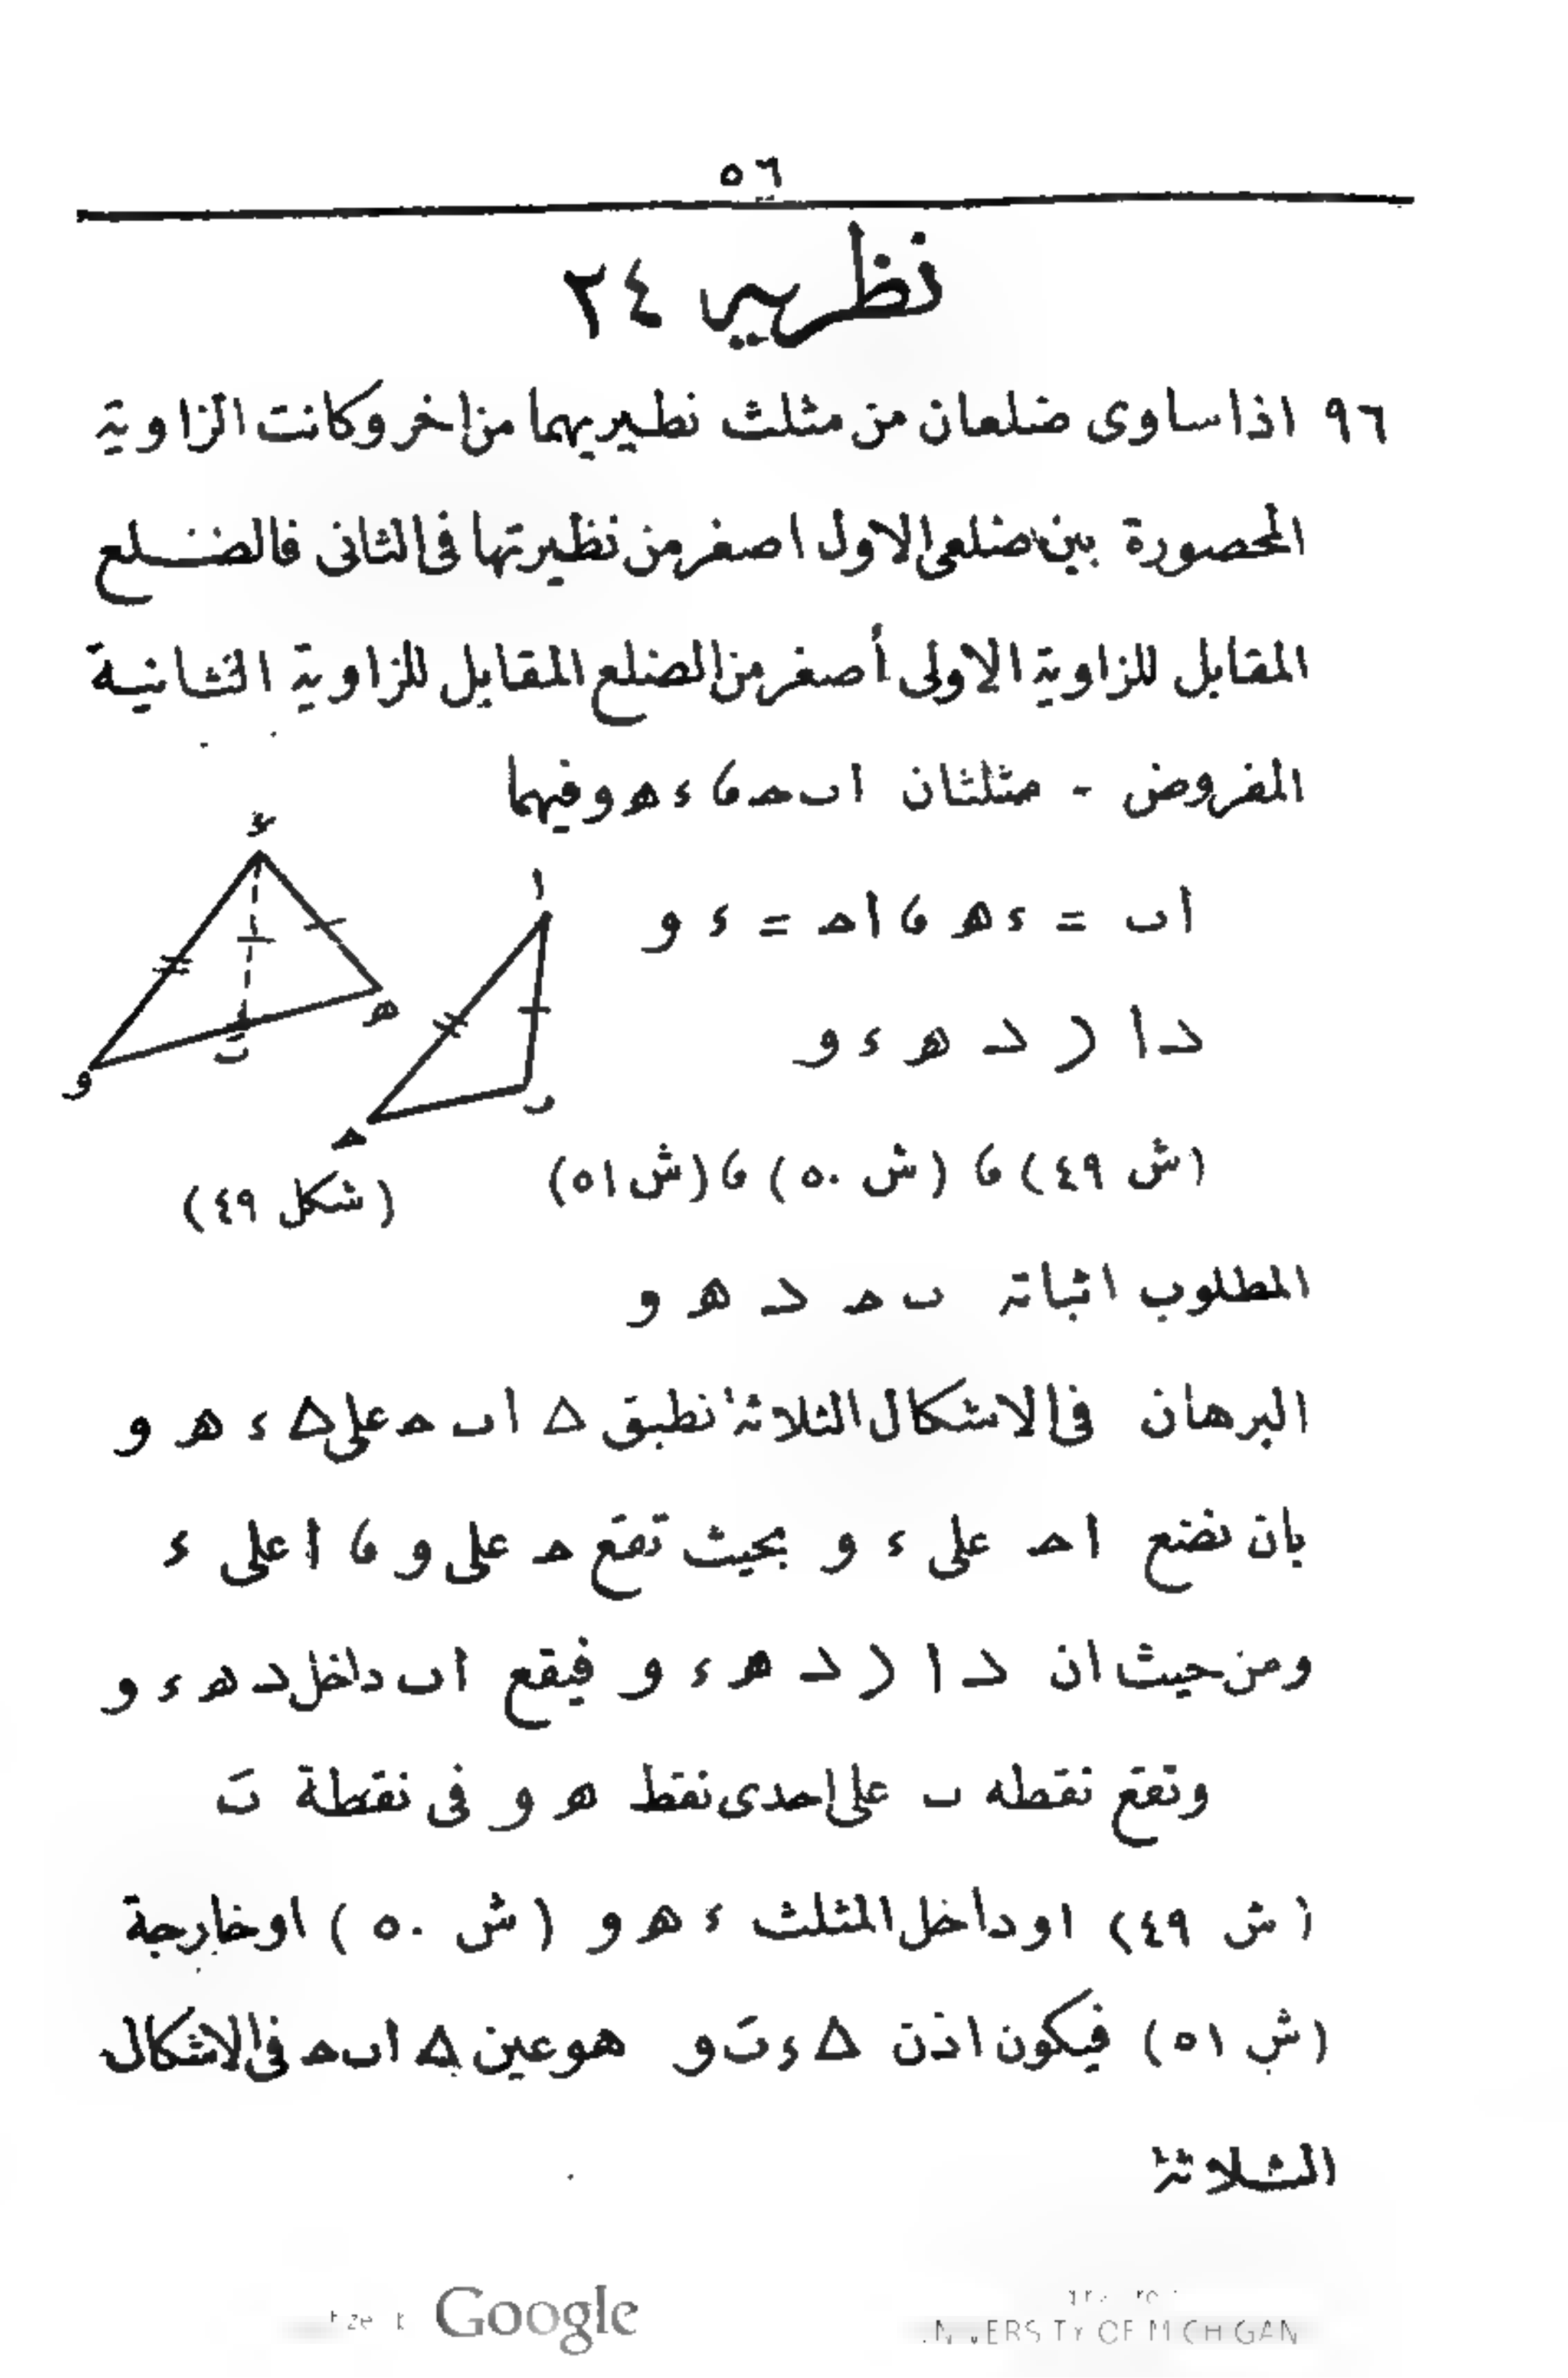 ٥٦
نظريه ٢٤
٩٦ اذا ساوى ضلعان من مثلث نظيريهما من اخر وكانت الزاوية
المحصورة بين ضلعى الاول اصغر من نظيرتها فى الثانى فالضلع
المقابل للزاوية الاولى أصغر من الضلع المقابل للزاوية الثانية
المفروض - مثلثان ا ب ح ، ء ه و وفيهما
ا ب = ء ه ، ا ح = ء و
د ا ( د ه ء و
(ش ٤٩) ، (ش ٥٠) ، (ش ٥١)
ء
ه
بَ
و
ا
ب
ح
(شكل ٤٩)
المطلوب اثباته ب ح < ه و
البرهان فى الاشكال الثلاثة نطبق △ ا ب ح على △ ء ه و
بان نضع ا ح على ء و بحيث تقع ح على و ، ا على ء
ومن حيث ان د ا ( د ه ء و فيقع ا ب داخل د ه ء و
وتقع نقطه ب على احدى نقط ه و فى نقطة بَ
(ش ٤٩) او داخل المثلث ء ه و (ش ٥٠) او خارجة
(ش ٥١) فيكون اذن △ ء بَ و هو عين △ ا ب ح فى الاشكال
الثلاثة
Google
UNIVERSITY OF MICHIGAN